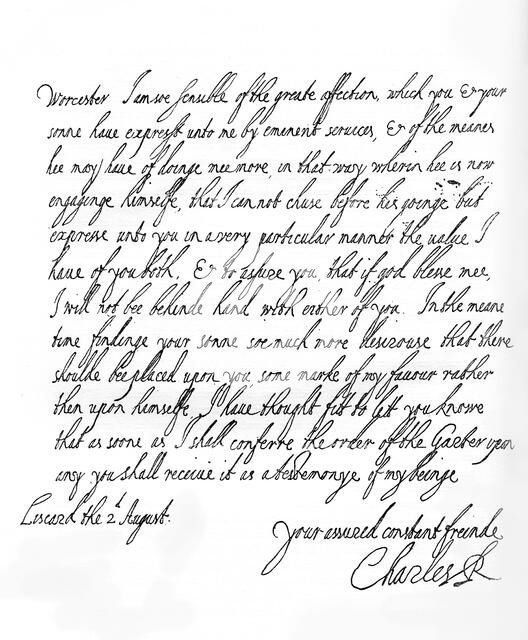 Worcester I am soe sensible of the greate affection, which you & your
sonne have exprest unto me by eminent services, & of the meanes
hee may have of doinge mee more, in that way wherin hee is now
engaginge himselfe, that I cannot chuse before his goinge but
expresse unto you in a very particular manner the value I
have of you both, & to assure you, that if god blesse mee,
I will not bee behinde hand with either of you. In the meane
time findinge your sonne soe much more desirouse that there
shoulde bee placed upon you some marke of my favour rather
then upon himselfe, I have thought fit to lett you knowe
that as soone as I shall conferre the order of the Garter upon
any you shall receive it as a testemonye of my beinge
Liscard the 2d August.
your assured constant freinde
Charles R